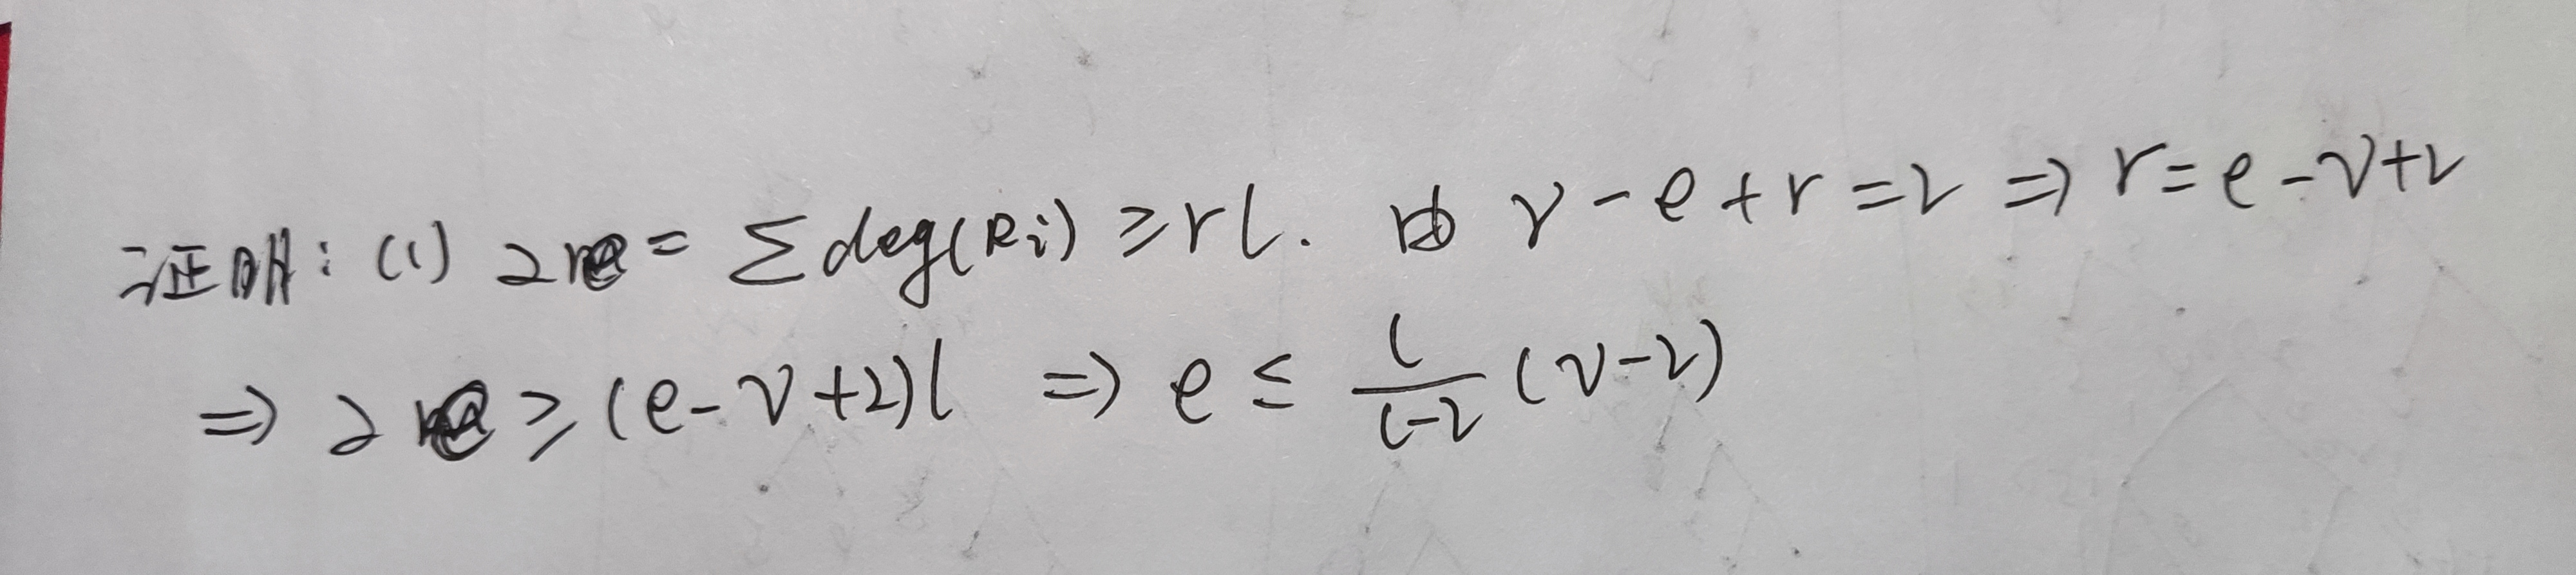 证明：(1) 2e = Σdeg(Ri) ≥ rl. 由 v - e + r = 2 ⇒ r = e - v + 2
⇒ 2e ≥ (e - v + 2)l ⇒ e ≤ \frac{l}{l-2} (v - 2)